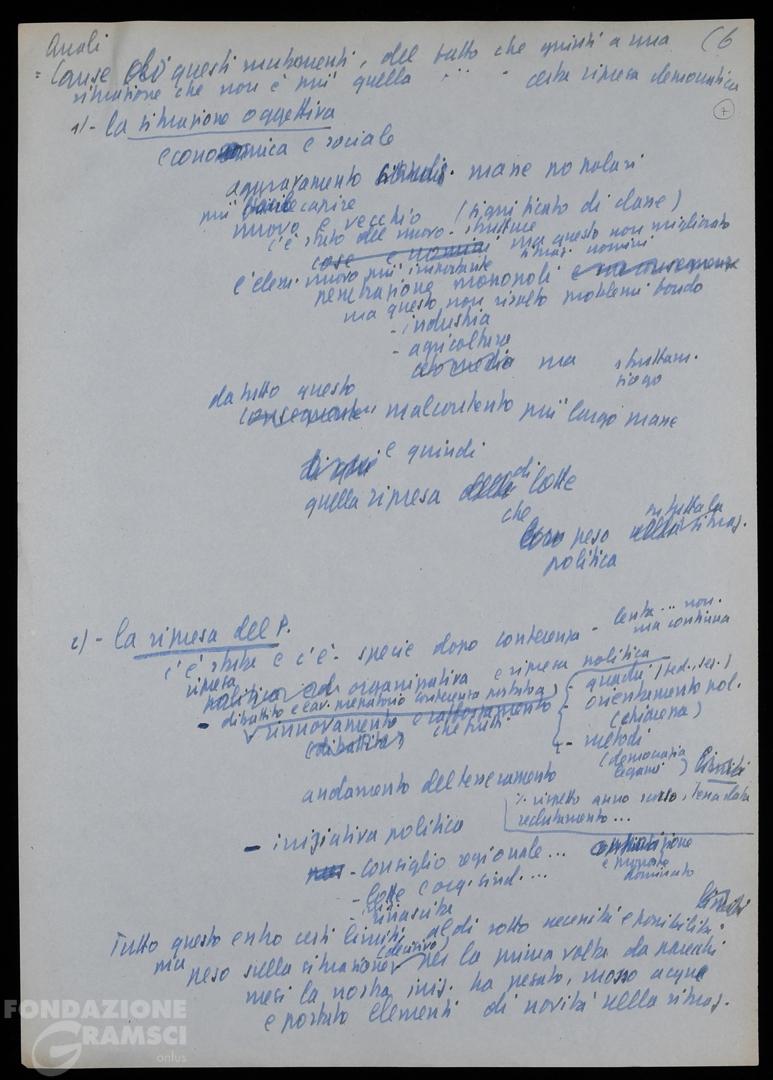 Quali (6
= cause di questi mutamenti, del fatto che quindi a una
situazione che non è più quella ... - certa ripresa democratica
7
1) - la situazione oggettiva
economica e sociale
aggravamento masse popolari
più capire
nuovo e vecchio (significato di classe)
c'è stato del nuovo - strutture
ma questo non migliorato
c'è elem. nuovo più importante
penetrazione monopoli
ma questo non risolto problemi fondo
- industria
- agricoltura
ma
da tutto questo
malcontento più largo masse
e quindi
quella ripresa di lotte
che
peso su tutta la situaz.
politica
2) - la ripresa del P.
c'è stata e c'è - specie dopo conferenza - lenta ... non
ma continua
ripresa
politica ed organizzativa e ripresa politica
- dibattito e lav. preparatorio conferenza
- quadri (fed., sez.)
rinnovamento e rafforzamento - orientamento pol.
(dibattito) che tutti (chiarezza)
- metodi
(democrazia
legami) limiti
andamento del tesseramento
% rispetto anno scorso, stessa data
reclutamento ...
- iniziativa politica
- consiglio regionale ...
- lotte e org. sind. ...
- rinascita limiti
Tutto questo entro certi limiti, al di sotto necessità e possibilità
ma (decisivo)
peso sulla situazione per la prima volta da parecchi
mesi la nostra iniz. ha pesato, mosso acque
e portato elementi di novità nella situaz.
FONDAZIONE
GRAMSCI
onlus